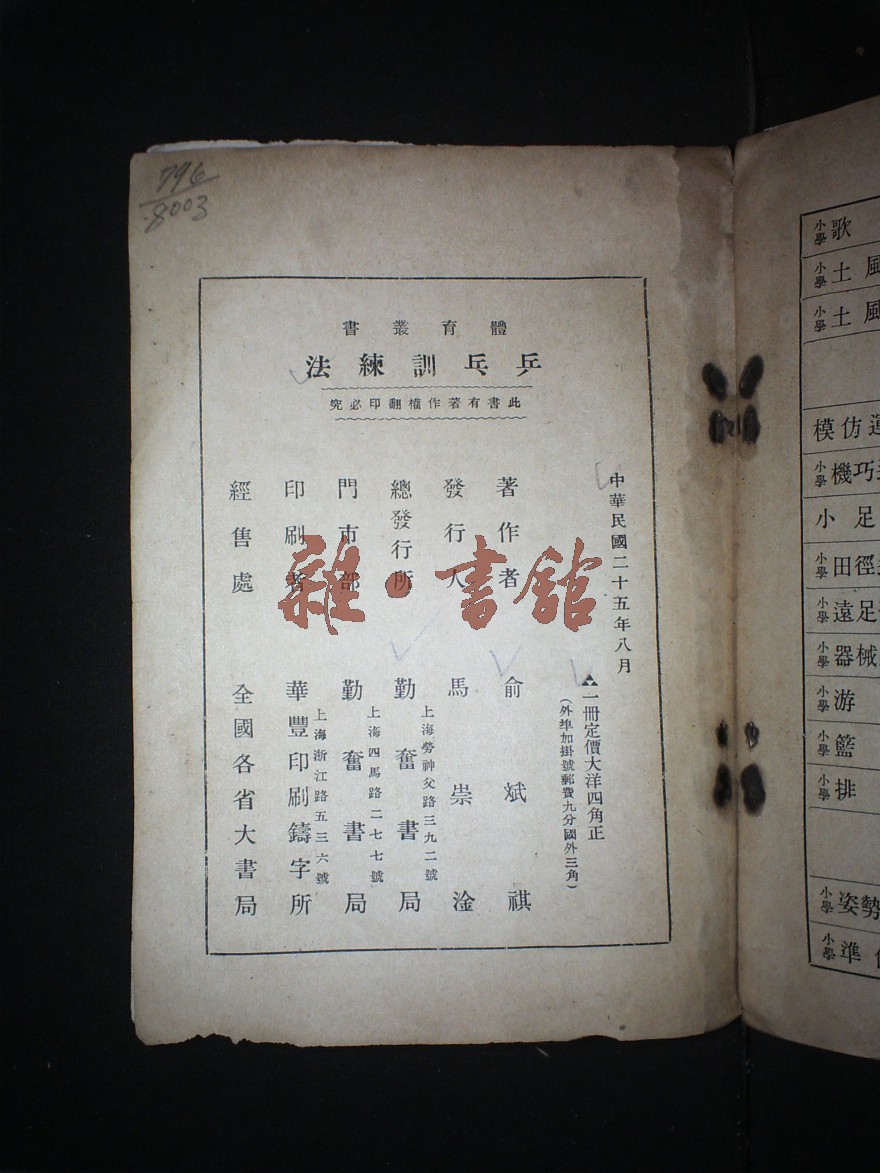 796
8003
體育叢書
乒乓訓練法
此書有著作權翻印必究
中華民國二十五年八月
一冊定價大洋四角正
(外埠加掛號郵費九分國外三角)
著作者 俞斌祺
發行人 馬崇淦
總發行所 勤奮書局
上海勞神父路三九二號
門市部 勤奮書局
上海四馬路二七七號
印刷者 華豐印刷鑄字所
上海浙江路五三六號
經售處 全國各省大書局
雜·書館
小學歌
小學土風
小學土風
模仿運
小學機巧
小足
小學田徑
小學遠足
小學器械
小學游
小學籃
小學排
小學姿勢
小學準